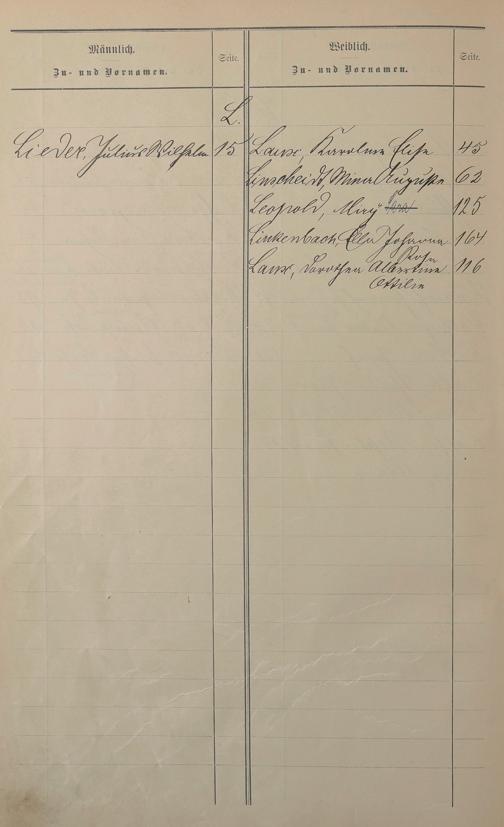 Männlich.
Zu- und Vornamen.
Seite.
Weiblich.
Zu- und Vornamen.
Seite.
L.
Lieder, Julius Wilhelm 15
Karoline Elise 45
Linscheidt, Mina Auguste 62
Leopold, May 125
Linkenbach, Ella Johanna 164
Rosa
Dorothea Albertine 116
Ottilie